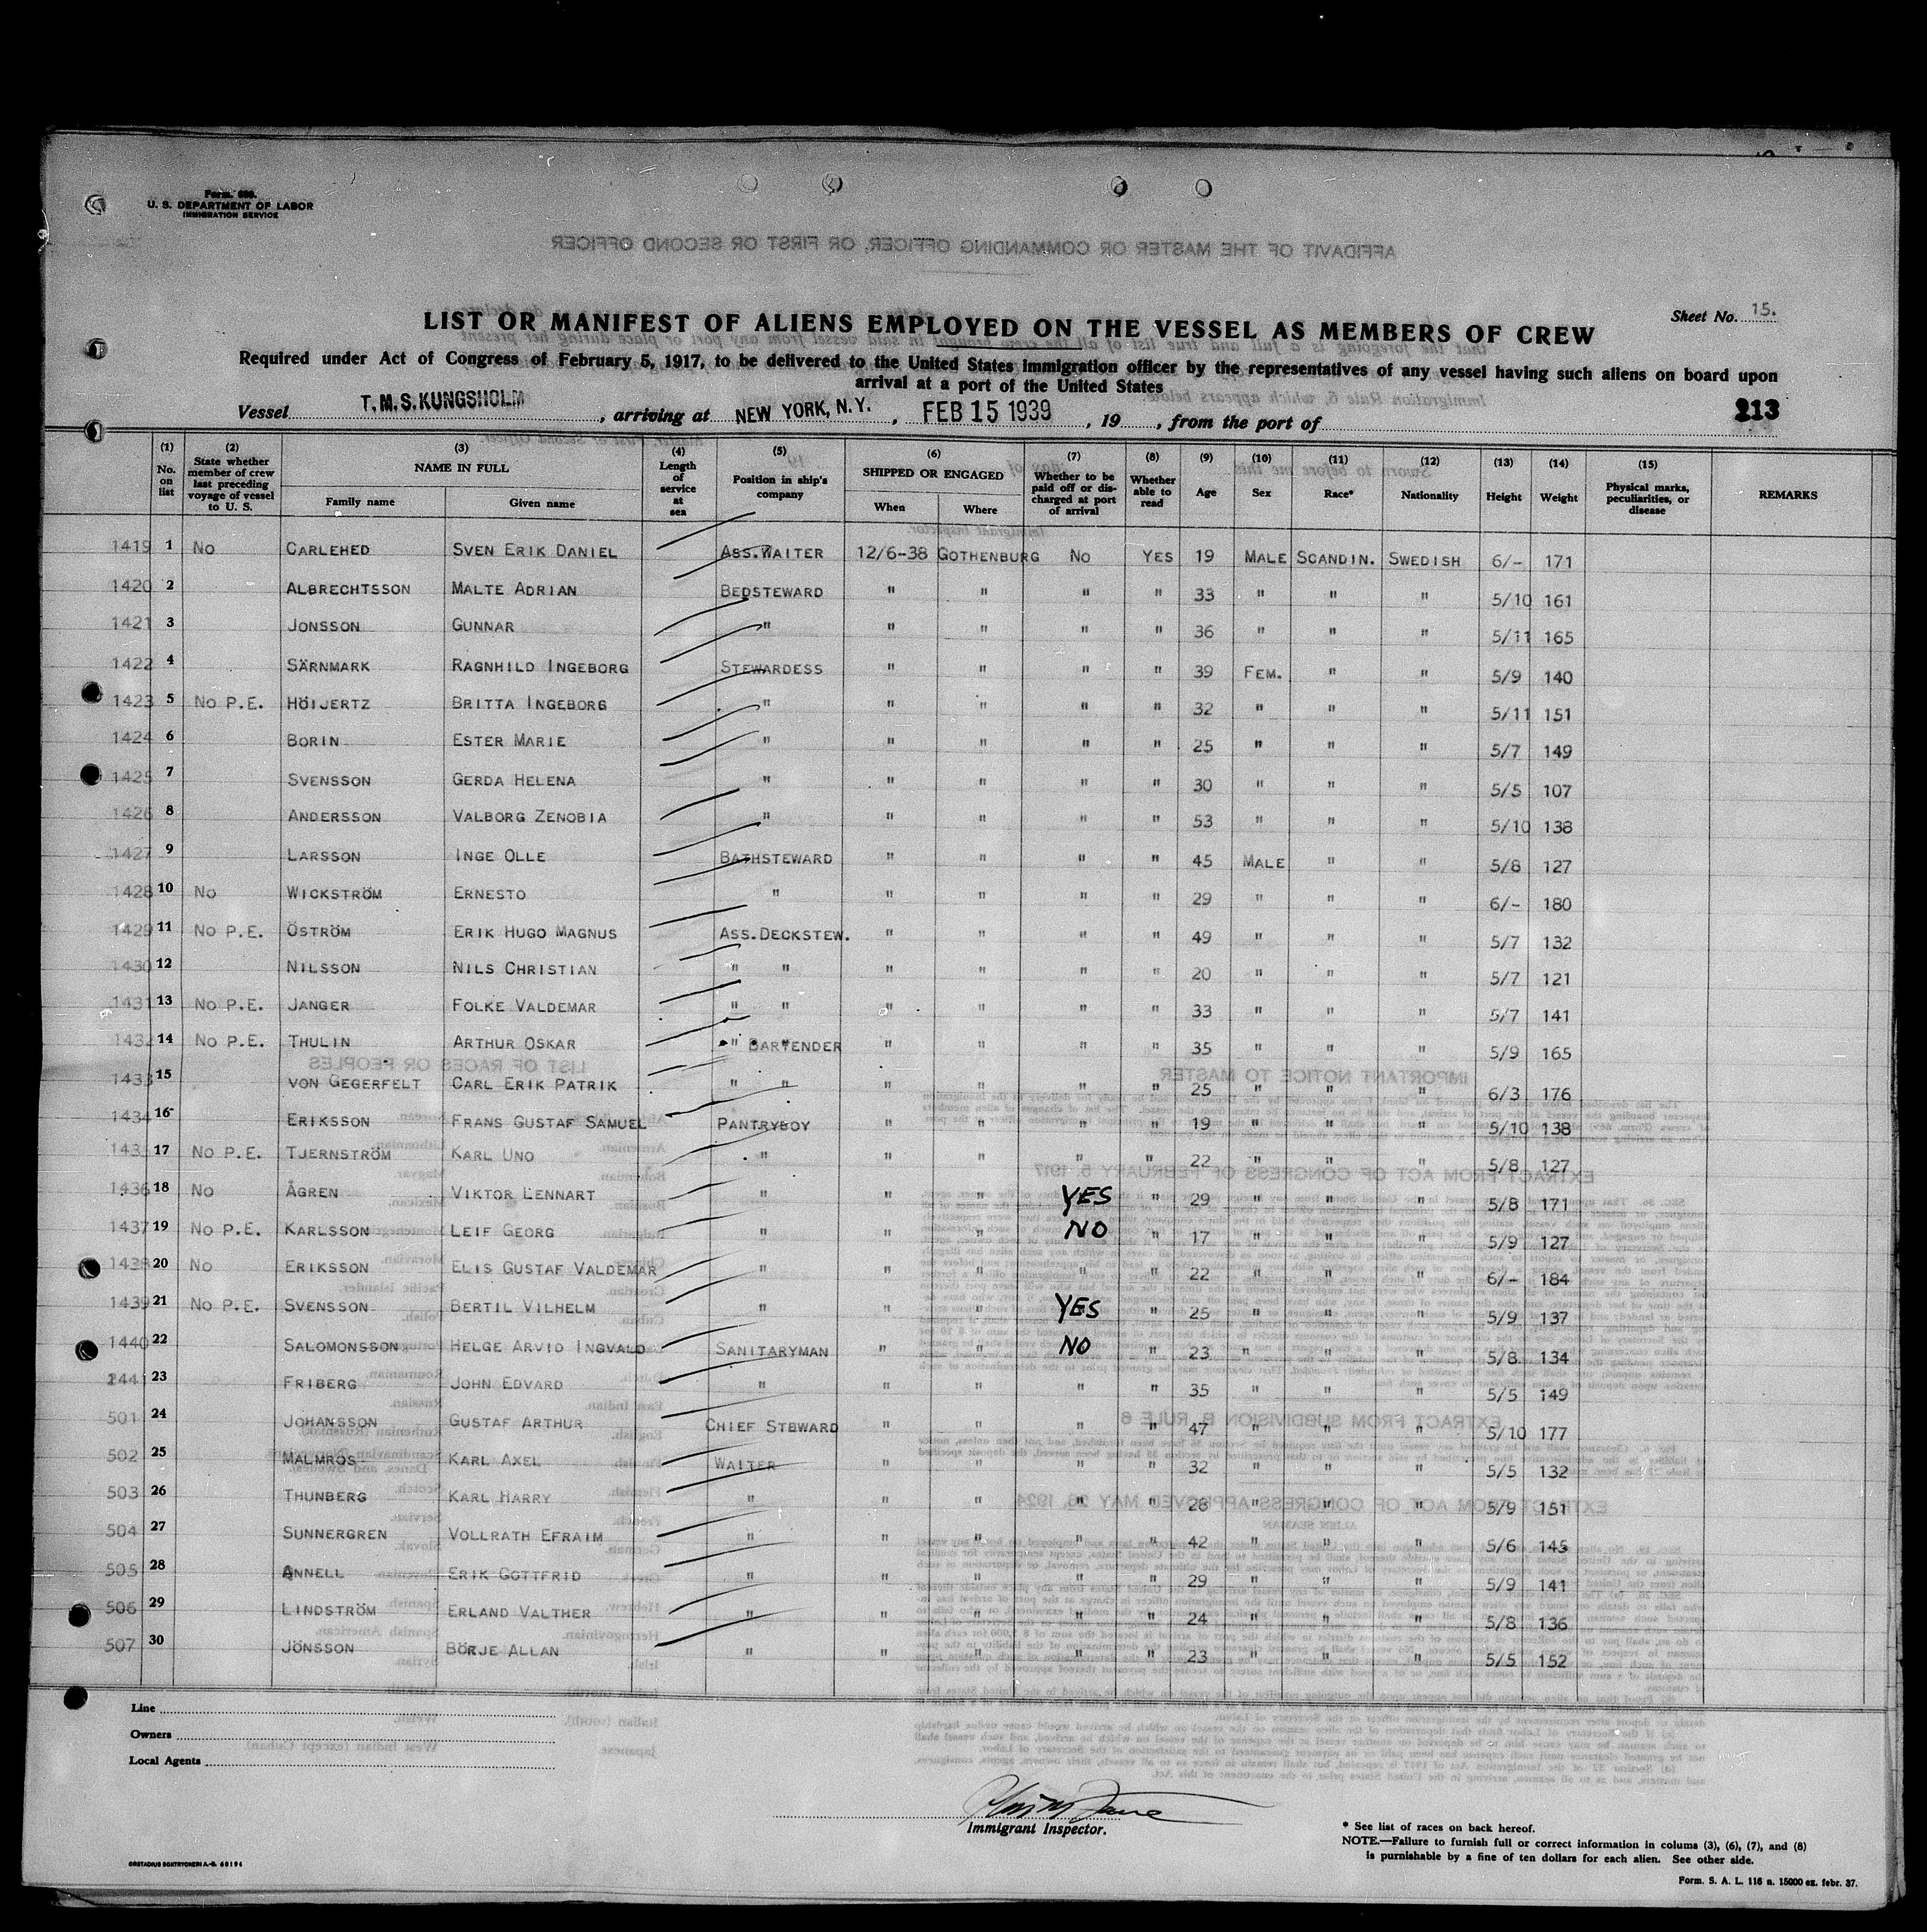 Form. 689.
U. S. DEPARTMENT OF LABOR
IMMIGRATION SERVICE
AFFIDAVIT OF THE MASTER OR COMMANDING OFFICER, OR FIRST OR SECOND OFFICER
LIST OR MANIFEST OF ALIENS EMPLOYED ON THE VESSEL AS MEMBERS OF CREW
Sheet No. 15.
Required under Act of Congress of February 5, 1917, to be delivered to the United States immigration officer by the representatives of any vessel having such aliens on board upon
arrival at a port of the United States
Vessel T.M.S. KUNGSHOLM, arriving at NEW YORK, N.Y., FEB 15 1939, 19, from the port of 213
(1) No. on list (2) State whether member of crew last preceding voyage of vessel to U. S. (3) NAME IN FULL Family name Given name (4) Length of service at sea (5) Position in ship's company (6) SHIPPED OR ENGAGED When Where (7) Whether to be paid off or discharged at port of arrival (8) Whether able to read (9) Age (10) Sex (11) Race* (12) Nationality (13) Height (14) Weight (15) Physical marks, peculiarities, or disease REMARKS
1419 1 No CARLEHED SVEN ERIK DANIEL ASS.WAITER 12/6-38 GOTHENBURG No YES 19 MALE SCANDIN. SWEDISH 6/- 171
1420 2 ALBRECHTSSON MALTE ADRIAN BEDSTEWARD " " " " 33 " " " 5/10 161
1421 3 JONSSON GUNNAR " " " " " 36 " " " 5/11 165
1422 4 SÄRNMARK RAGNHILD INGEBORG STEWARDESS " " " " 39 FEM. " " 5/9 140
1423 5 No P.E. HÖIJERTZ BRITTA INGEBORG " " " " " 32 " " " 5/11 151
1424 6 BORIN ESTER MARIE " " " " " 25 " " " 5/7 149
1425 7 SVENSSON GERDA HELENA " " " " " 30 " " " 5/5 107
1426 8 ANDERSSON VALBORG ZENOBIA " " " " " 53 " " " 5/10 138
1427 9 LARSSON INGE OLLE BATHSTEWARD " " " " 45 MALE " " 5/8 127
1428 10 No WICKSTRÖM ERNESTO " " " " " 29 " " " 6/- 180
1429 11 No P.E. ÖSTRÖM ERIK HUGO MAGNUS ASS.DECKSTEW. " " " " 49 " " " 5/7 132
1430 12 NILSSON NILS CHRISTIAN " " " " " " 20 " " " 5/7 121
1431 13 No P.E. JANGER FOLKE VALDEMAR " " " " " " 33 " " " 5/7 141
1432 14 No P.E. THULIN ARTHUR OSKAR " BARTENDER " " " " 35 " " " 5/9 165
1433 15 VON GEGERFELT CARL ERIK PATRIK " " " " " " 25 " " " 6/3 176
1434 16 ERIKSSON FRANS GUSTAF SAMUEL PANTRYBOY " " " " 19 " " " 5/10 138
143 17 No P.E. TJERNSTRÖM KARL UNO " " " " " 22 " " " 5/8 127
1436 18 No ÅGREN VIKTOR LENNART " " " YES " 29 " " " 5/8 171
1437 19 No P.E. KARLSSON LEIF GEORG " " " NO " 17 " " " 5/9 127
1438 20 No ERIKSSON ELIS GUSTAF VALDEMAR " " " " " 22 " " " 6/- 184
1439 21 No P.E. SVENSSON BERTIL VILHELM " " " YES " 25 " " " 5/9 137
1440 22 SALOMONSSON HELGE ARVID INGVALD SANITARYMAN " " NO " 23 " " " 5/8 134
1441 23 FRIBERG JOHN EDVARD " " " " " 35 " " " 5/5 149
501 24 JOHANSSON GUSTAF ARTHUR CHIEF STEWARD " " " " 47 " " " 5/10 177
502 25 MALMROS KARL AXEL WAITER " " " " 32 " " " 5/5 132
503 26 THUNBERG KARL HARRY " " " " " 28 " " " 5/9 151
504 27 SUNNERGREN VOLLRATH EFRAIM " " " " " 42 " " " 5/6 145
505 28 ANNELL ERIK GOTTFRID " " " " " 29 " " " 5/9 141
506 29 LINDSTRÖM ERLAND VALTHER " " " " " 24 " " " 5/8 136
507 30 JÖNSSON BÖRJE ALLAN " " " " " 23 " " " 5/5 152
Line
Owners
Local Agents
Immigrant Inspector.
* See list of races on back hereof.
NOTE.—Failure to furnish full or correct information in colums (3), (6), (7), and (8)
is purnishable by a fine of ten dollars for each alien. See other side.
ORSTADIUS BOKTRYCKERI A.-B. 60194
Form. S. A. L. 116 n. 15000 ex. febr. 37.